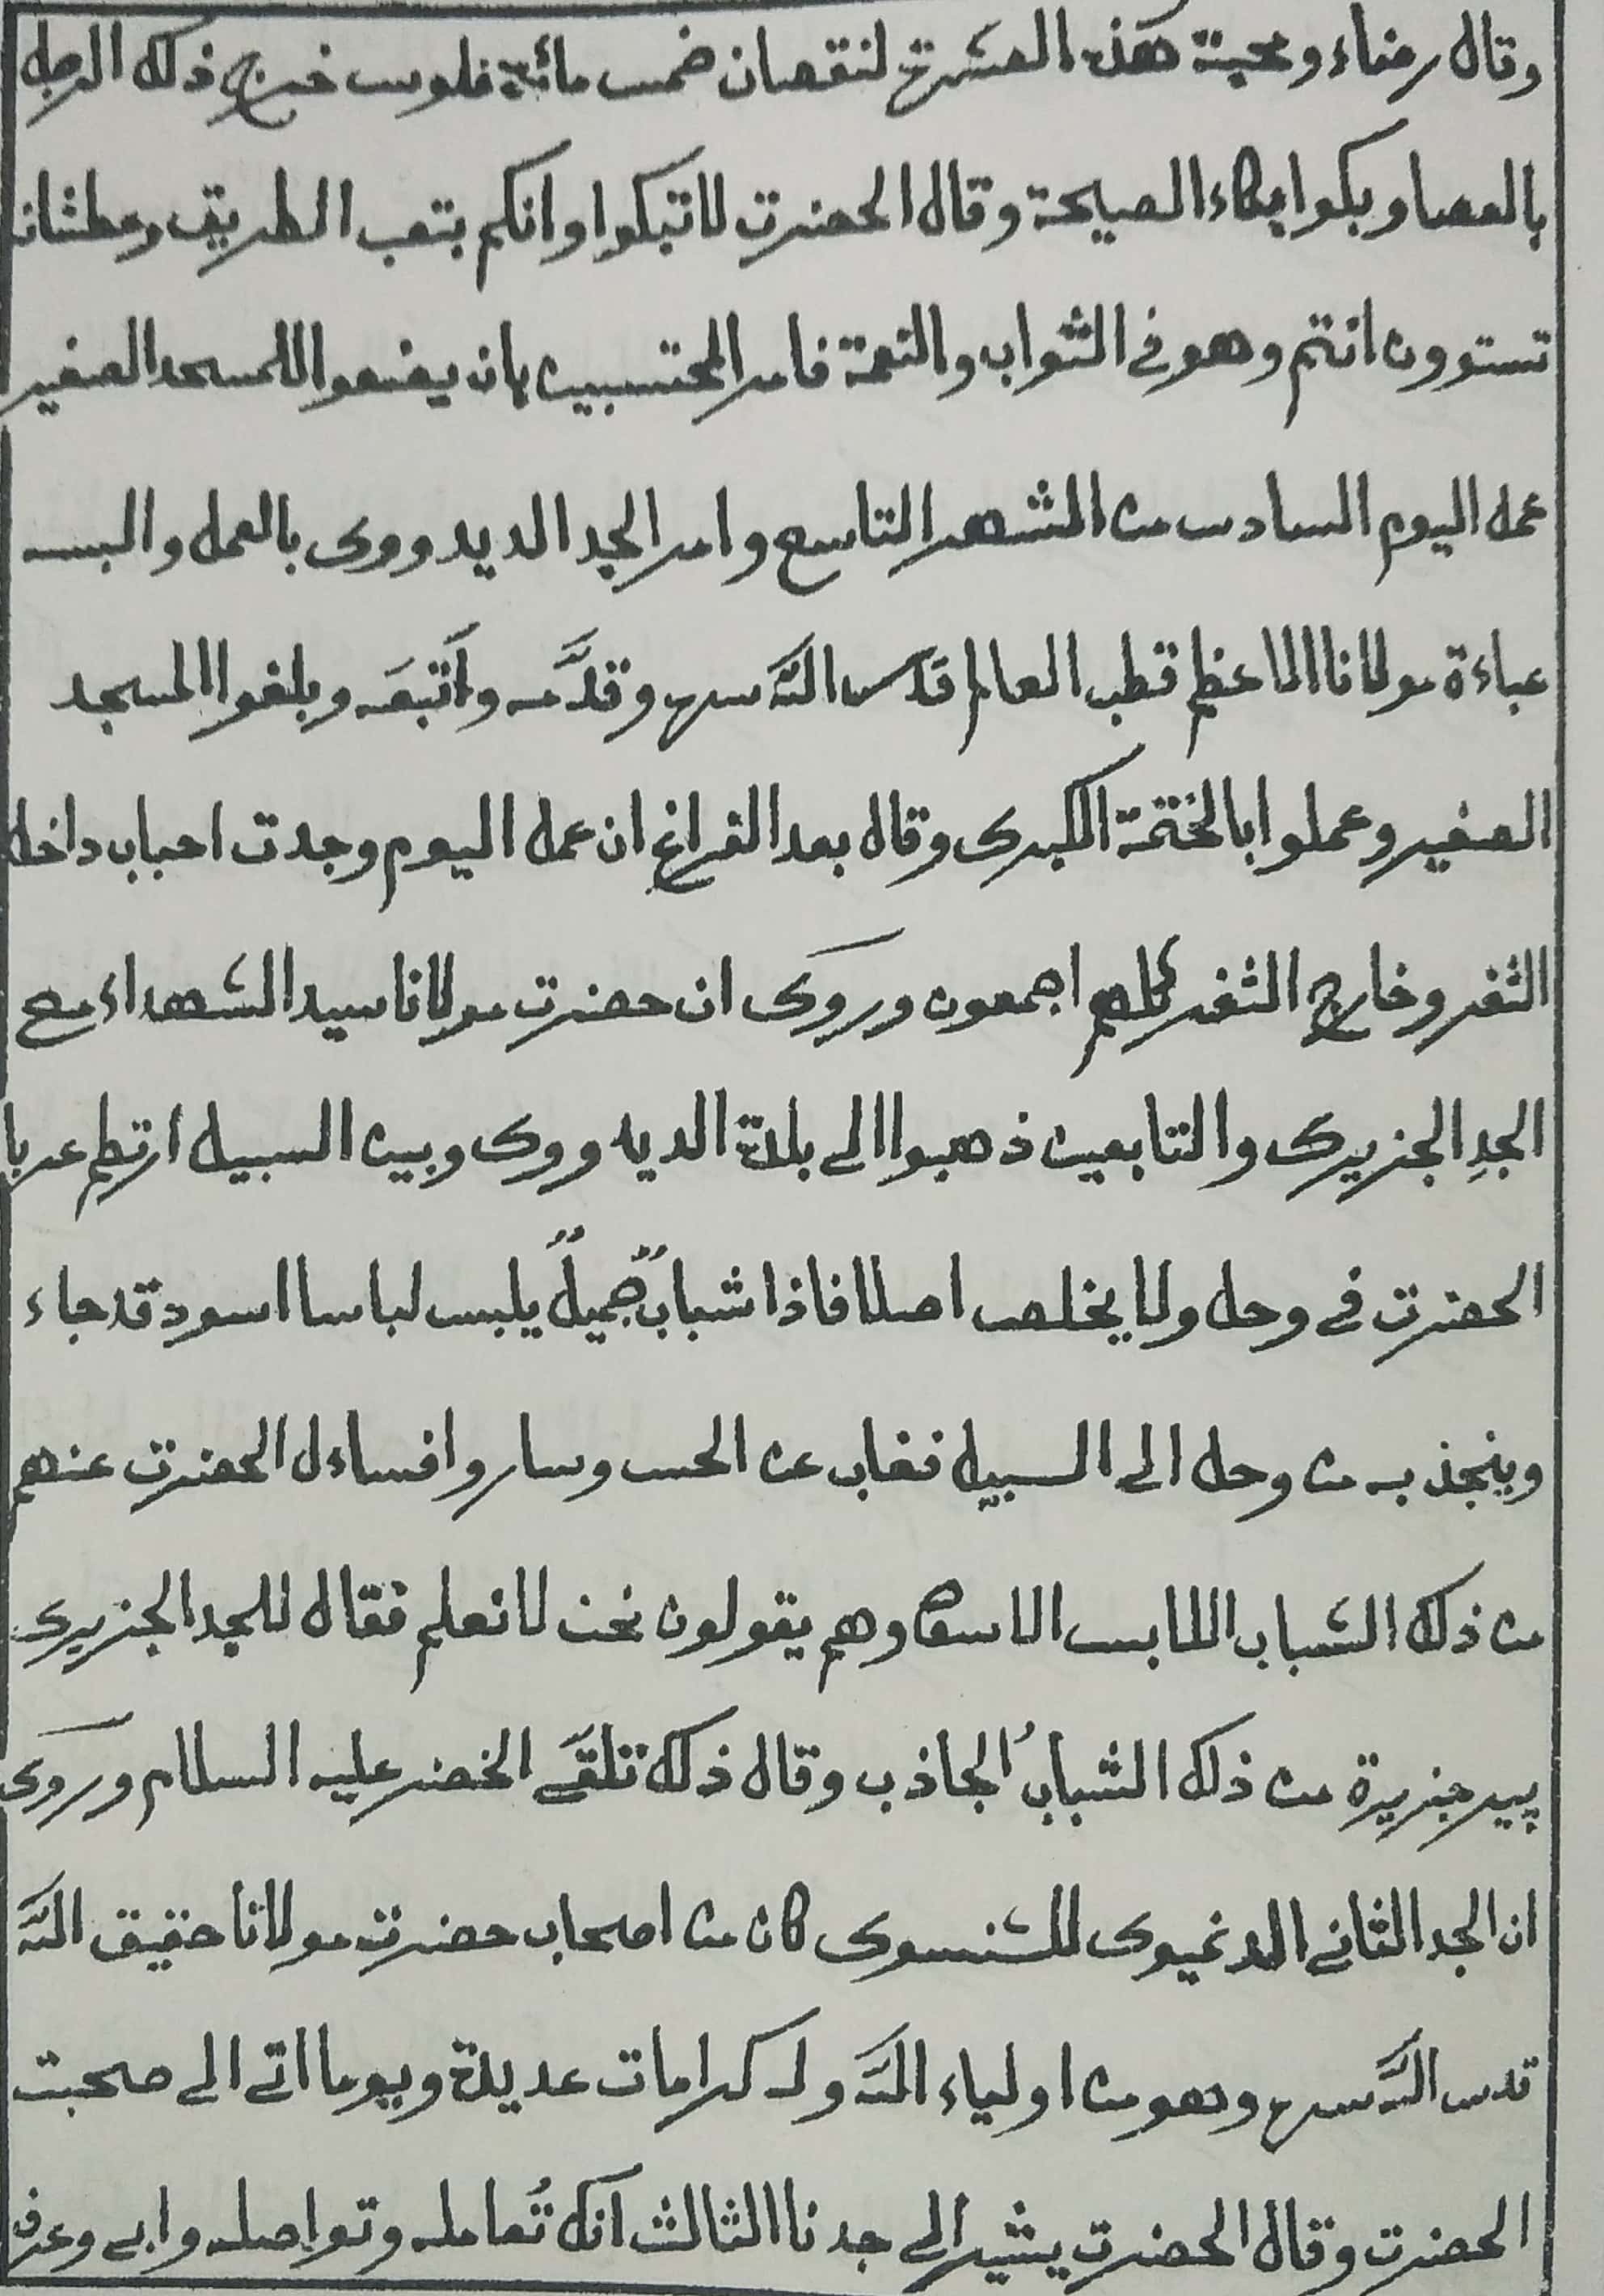 وقال رضاء ومحبة هذه العشرة لنقصان خمس مائة فلوس خرج ذلك الرجل
بالعصا وبكوا بكاء الصيحة وقال الحضرت لاتبكوا وانكم بتعب الطريق وعطشانه
تستوون انتم وهو في الثواب والنعمة فامر المحتسبين بان يضعوا للمسجد الصغير
عمل اليوم السادس من الشهر التاسع وامر الجد الديد ووى بالعمل والبسه
عباءة مولانا الاعظم قطب العالم قدس الله سره وقدَّمه واَتبعَه وبلغوا المسجد
الصغير وعملوا بالختمة الكبرى وقال بعد الفراغ ان عمل اليوم وجدت احباب داخل
الثغر وخارج الثغر كلهم اجمعون وروَى ان حضرت مولانا سيد الشهداء مع
الجدِ الجزيرى والتابعين ذهبوا الى بلدة الديه ووى وبين السبيل ارتطم عربا
الحضرت في وحل ولا يخلص اصلا فاذا شبابٌ جميلٌ يلبس لباسا اسود قد جاء
وينجذبه من وحل الى السبيل فغاب عن الحس وساروا فساءل الحضرت عنهم
من ذلك الشباب اللابس الاسود وهم يقولون نحن لانعلم فقال للجد الجزيرى
پير جزيرة من ذلك الشبابُ الجاذب وقال ذلك تلقَى الخضر عليه السلام وروَى
ان الجد الثاني المدغيوى للشنسوى كان من اصحاب حضرت مولانا حقيق الله
قدس الله سره وهو من اولياء الله وله كرامات عديدة ويوما اتى الى صحبت
الحضرت وقال الحضرت يشير الى جدنا الثالث انك تُعامله وتواصله وابى وعرف